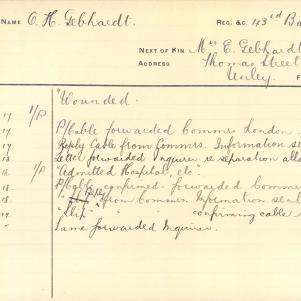 NAME O. H. Gebhardt. REG. &c. 43rd Ba
NEXT OF KIN Mrs E. Gebhardt
ADDRESS Thomas Street
Unley. F
"Wounded.
17. 11/P P/Cable forwarded Commrs London.
17 Reply Cable from Commrs. Information se
18. Letter forwarded Inquirer re separation allo
18. 11/P "Admitted Hospital, etc.
18. P/Cable confirmed. forwarded Commis
18. from Commrs Information sent
19 "Slip" " " confirming cable
- Same forwarded Inquirer.